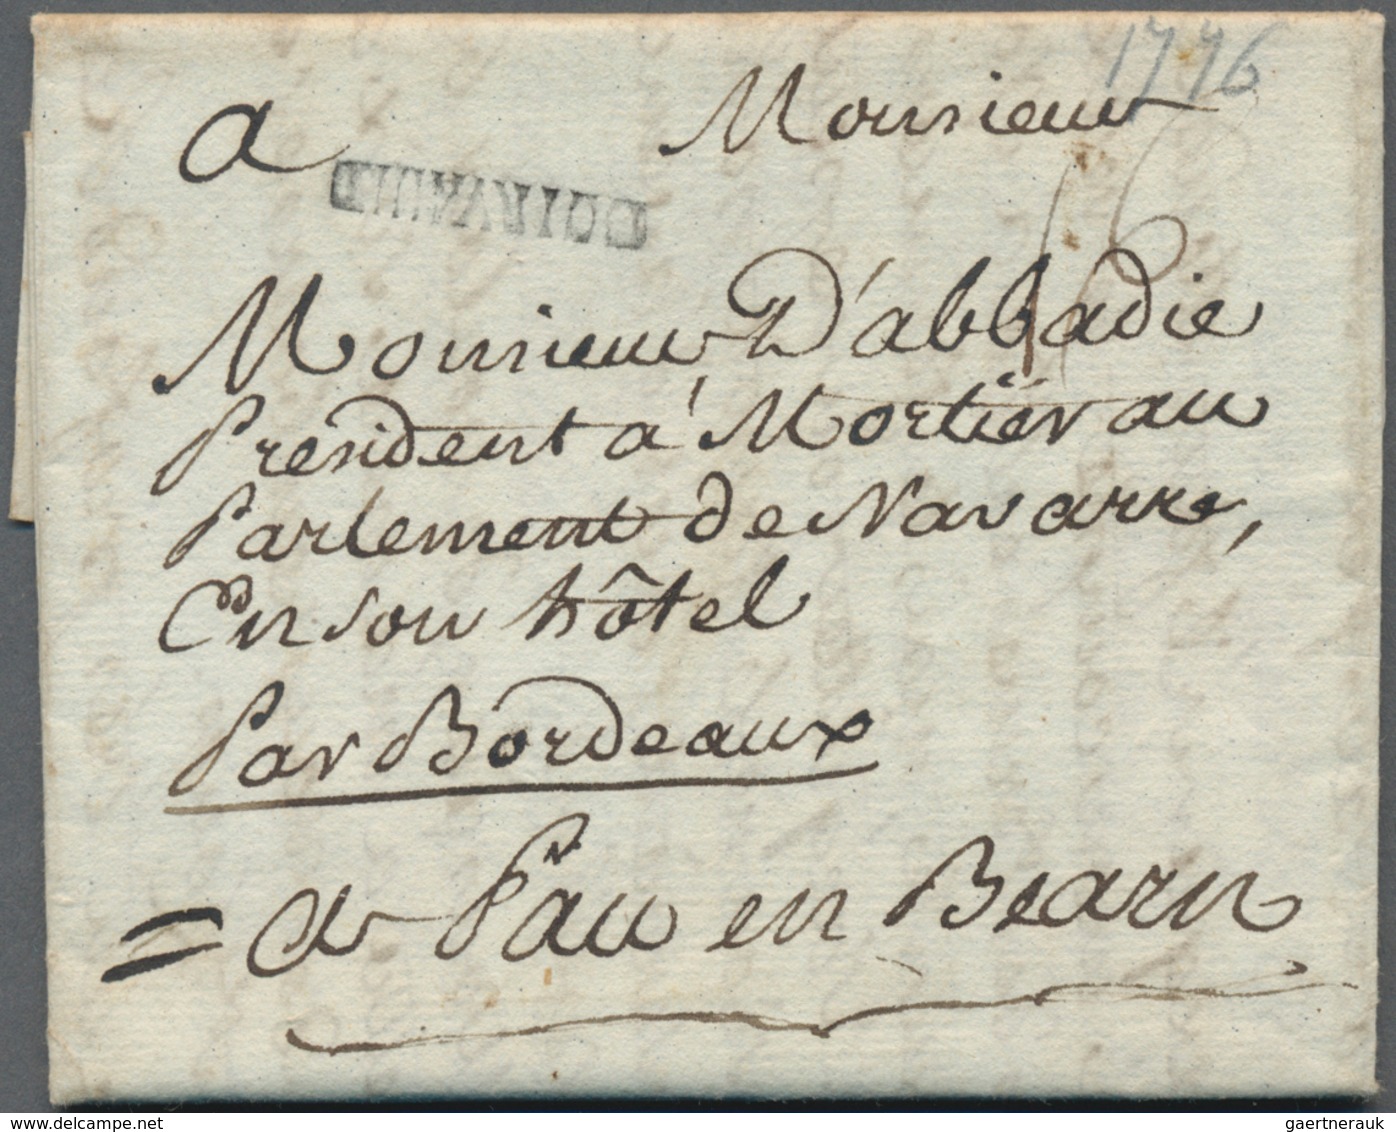 1776
a Monsieur
16
Monsieur D'abbadie
President à Mortier au
Parlement de Navarre,
En son hôtel
Par Bordeaux
= a Pau en Bearn
www.delcampe.net
gaertnerauk